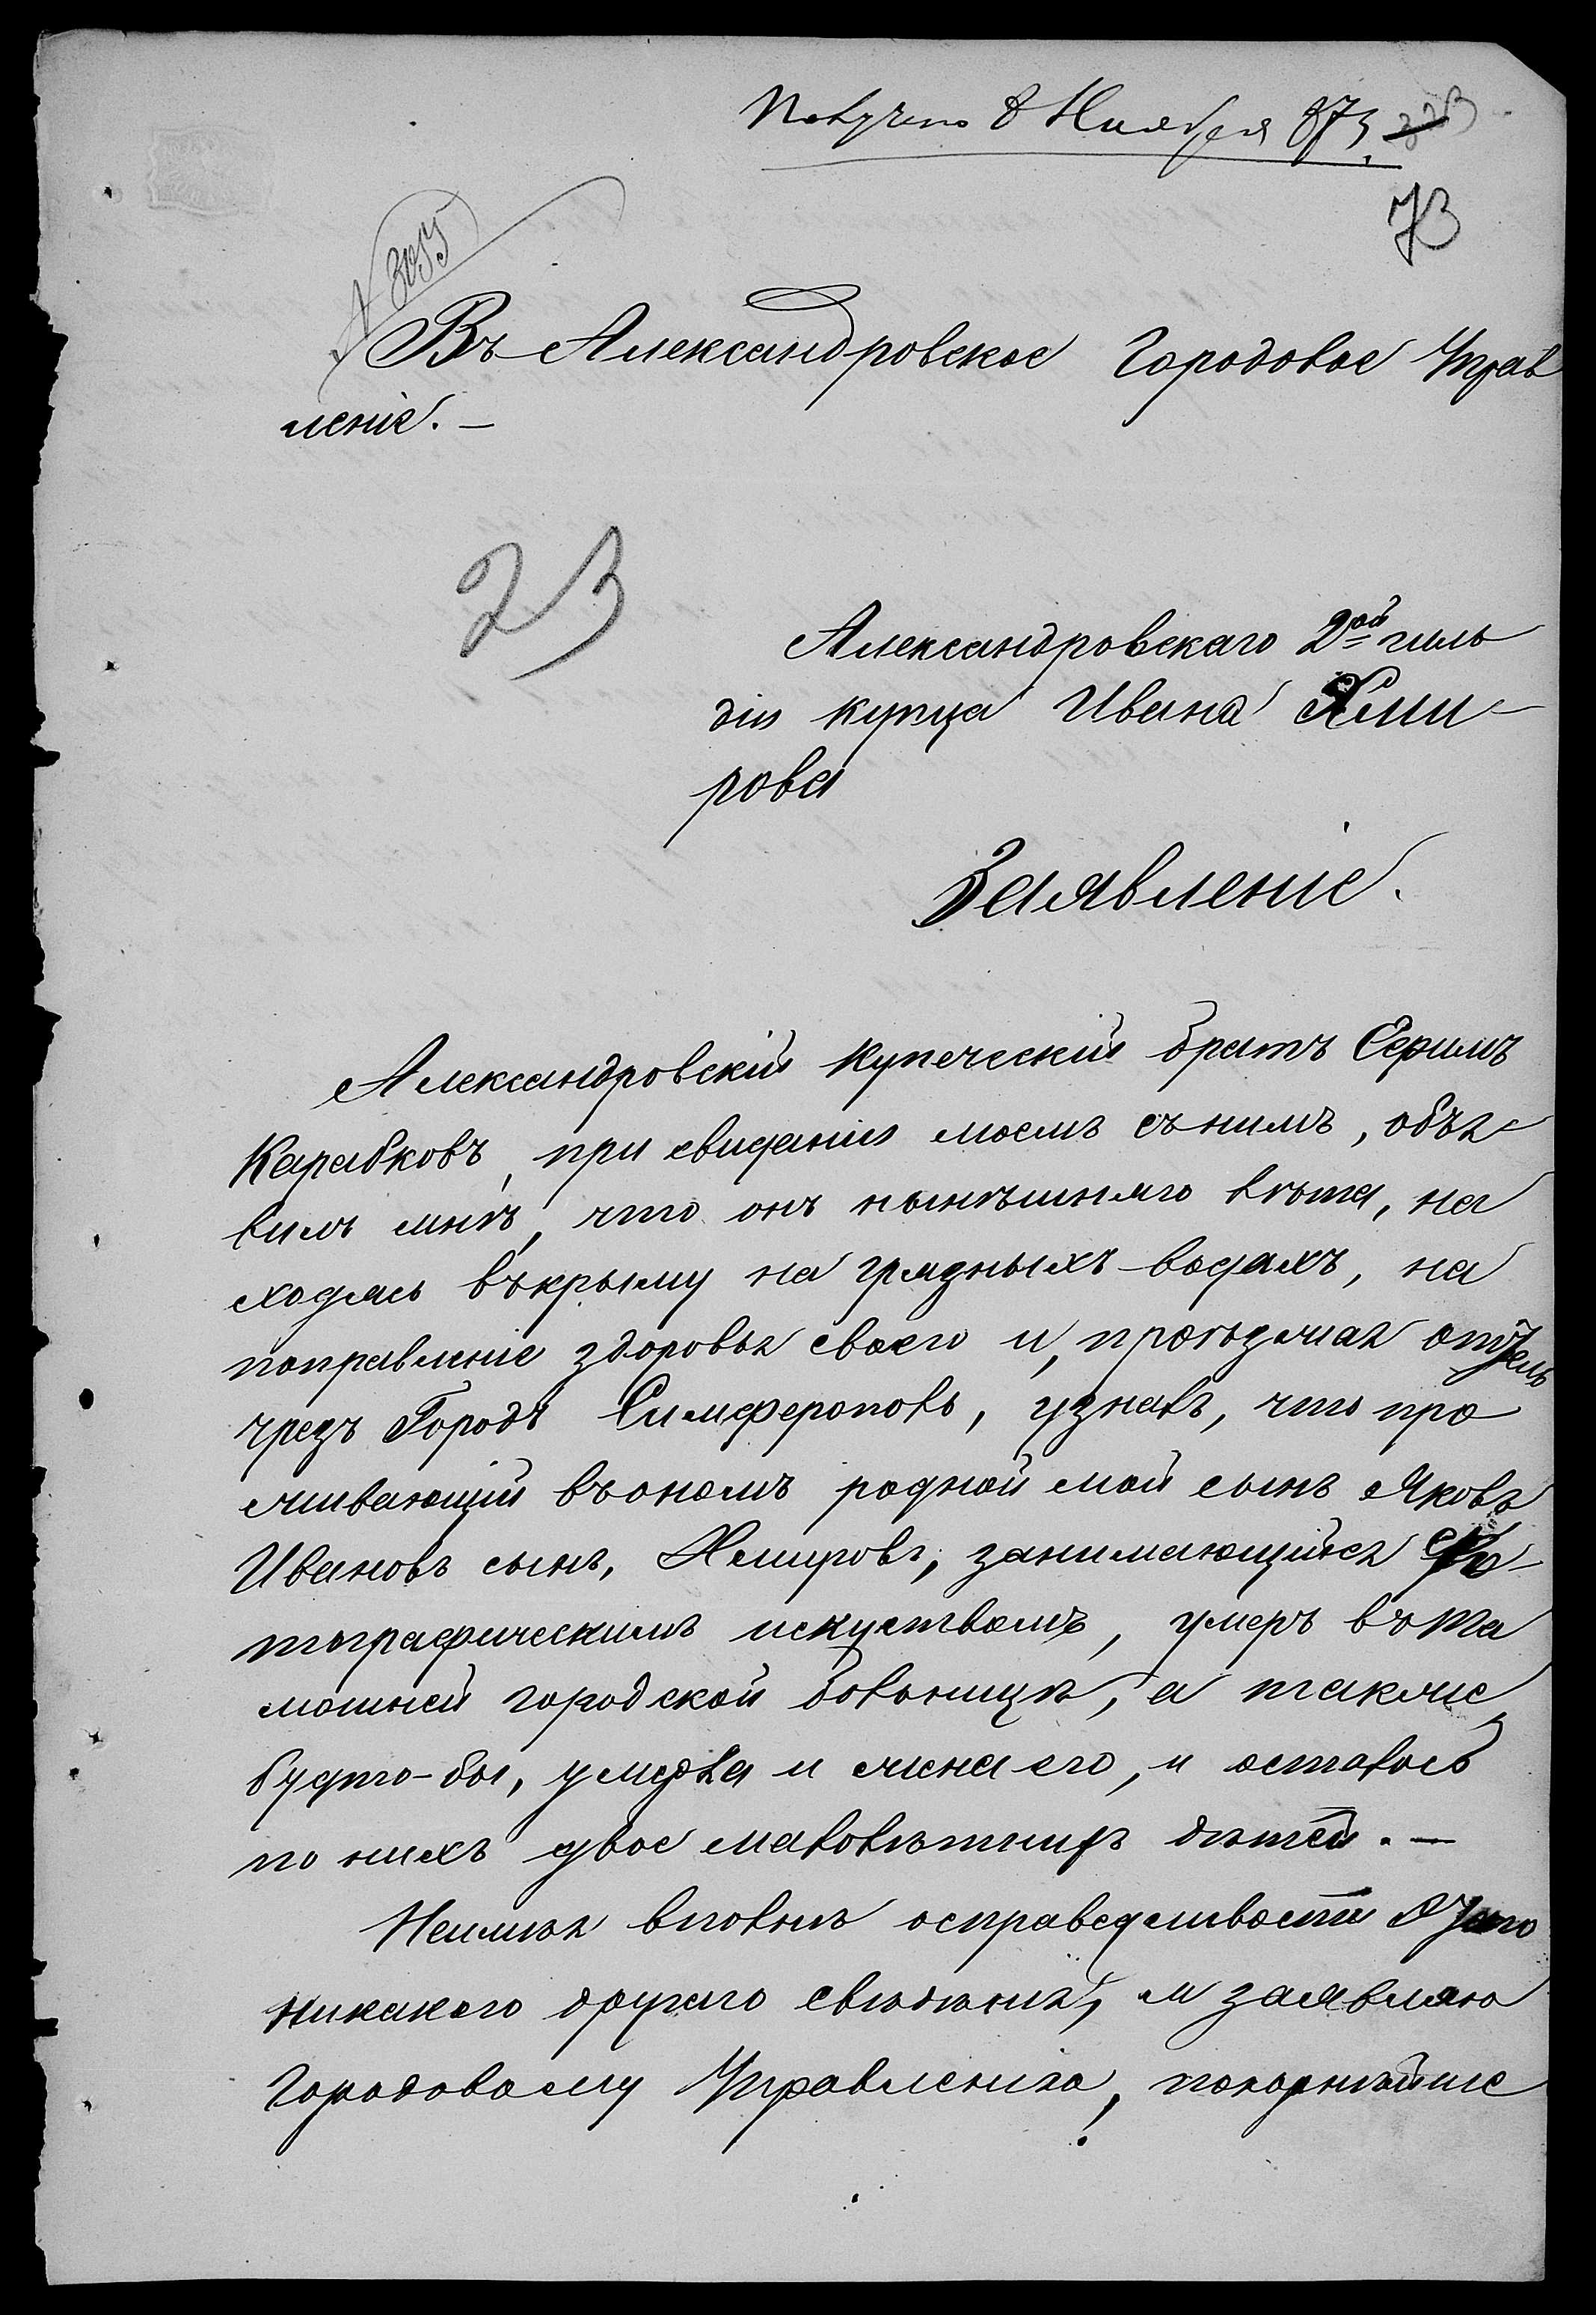 Получено 8 Ноября 873
73
№ 3055
Въ Александровское Городовое Управ
леніе. —
23
Александровскаго 2ой гиль
діи купца Ивана Хми-
рова
Заявленіе.
Александровскій купеческій братъ Сефимъ
Карабковъ, при свиданіи моемъ съ нимъ, объя-
вилъ мнѣ, что онъ нынѣшняго лѣта, на
ходясь въ крыму на грязныхъ-водахъ, на
поправленіе здоровья своего и, проѣзжая оттель
чрезъ Городъ Симферополь, узналъ, что про
живающій въ ономъ родной мой сынъ Яковъ
Ивановъ сынъ, Хмировъ, занимающійся Фо-
тографическимъ искуствомъ, умеръ въ та
мошней городской больницѣ, а также,
будто-бы, умерла и жена его, и осталось
по нихъ двое малолѣтнихъ дѣтей. —
Неимѣя вполнѣ осправедливости этого
никакого другаго свѣдѣнія, я заявляю
Городовому Управленію, покорнѣйше